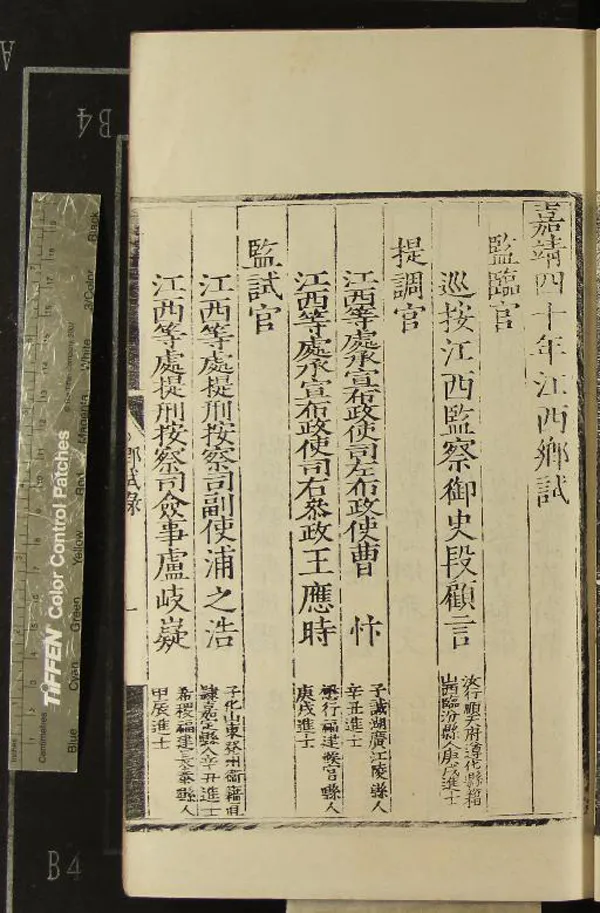 嘉靖四十年江西鄉試
監臨官
巡按江西監察御史段顧言
汝行順天府遵化縣籍
山西臨汾縣人庚戌進士
提調官
江西等處承宣布政使司左布政使曹忭
子誠湖廣江陵縣人
辛丑進士
江西等處承宣布政使司右叅政王應時
懋行福建候官縣人
庚戌進士
監試官
江西等處提刑按察司副使浦之浩
子化山東登州衞籍直
隸嘉定縣人辛丑進士
江西等處提刑按察司僉事盧岐嶷
希稷福建長泰縣人
甲辰進士
鄉試錄
一
B4
A
B4
TIFFEN Color Control Patches
Blue
Cyan
Green
Yellow
Red
Magenta
White
3/Color
Black
Inches
Centimetres